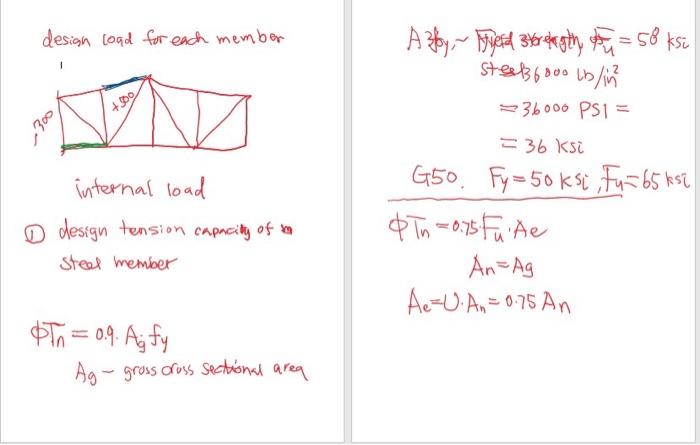 design load for each member
-300
+500
internal load
① design tension capacity of
steel member
ΦTn = 0.9. Ag fy
Ag - gross cross sectional area
Fu = 58 ksi
36000 lb/in²
= 36000 PSI =
= 36 ksi
G50. Fy = 50 ksi, Fu = 65 ksi
ΦTn = 0.75 Fu · Ae
An = Ag
Ae = U·An = 0.75 An